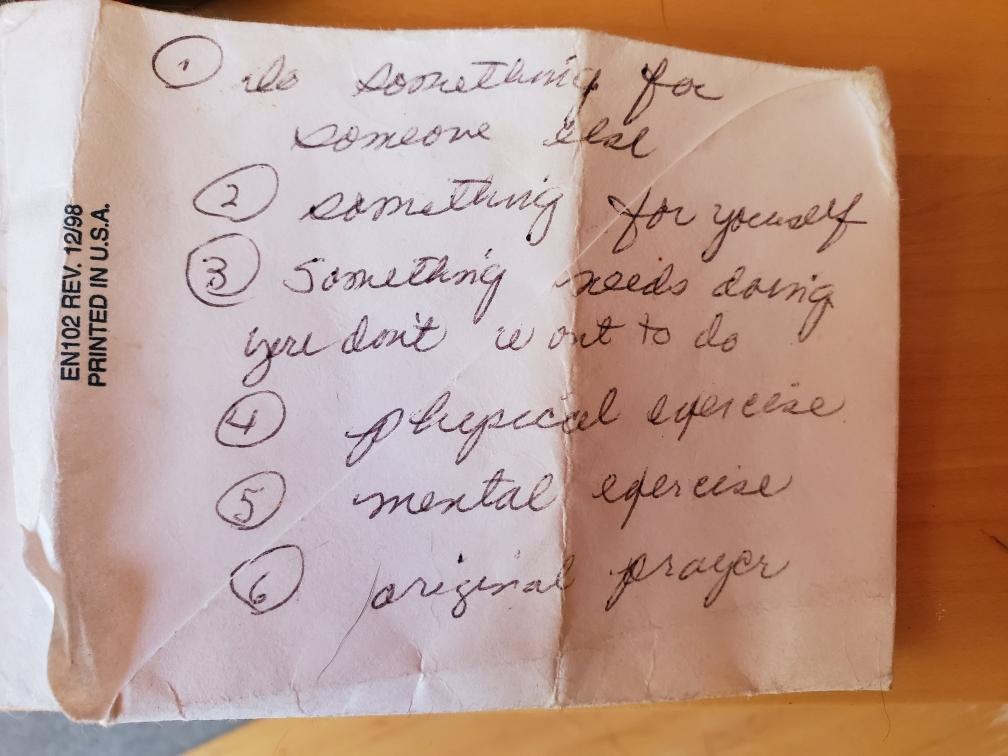 ① do something for
someone else
② something for yourself
③ Something needs doing
you don't want to do
④ physical exercise
⑤ mental exercise
⑥ original prayer
EN102 REV. 12/98
PRINTED IN U.S.A.